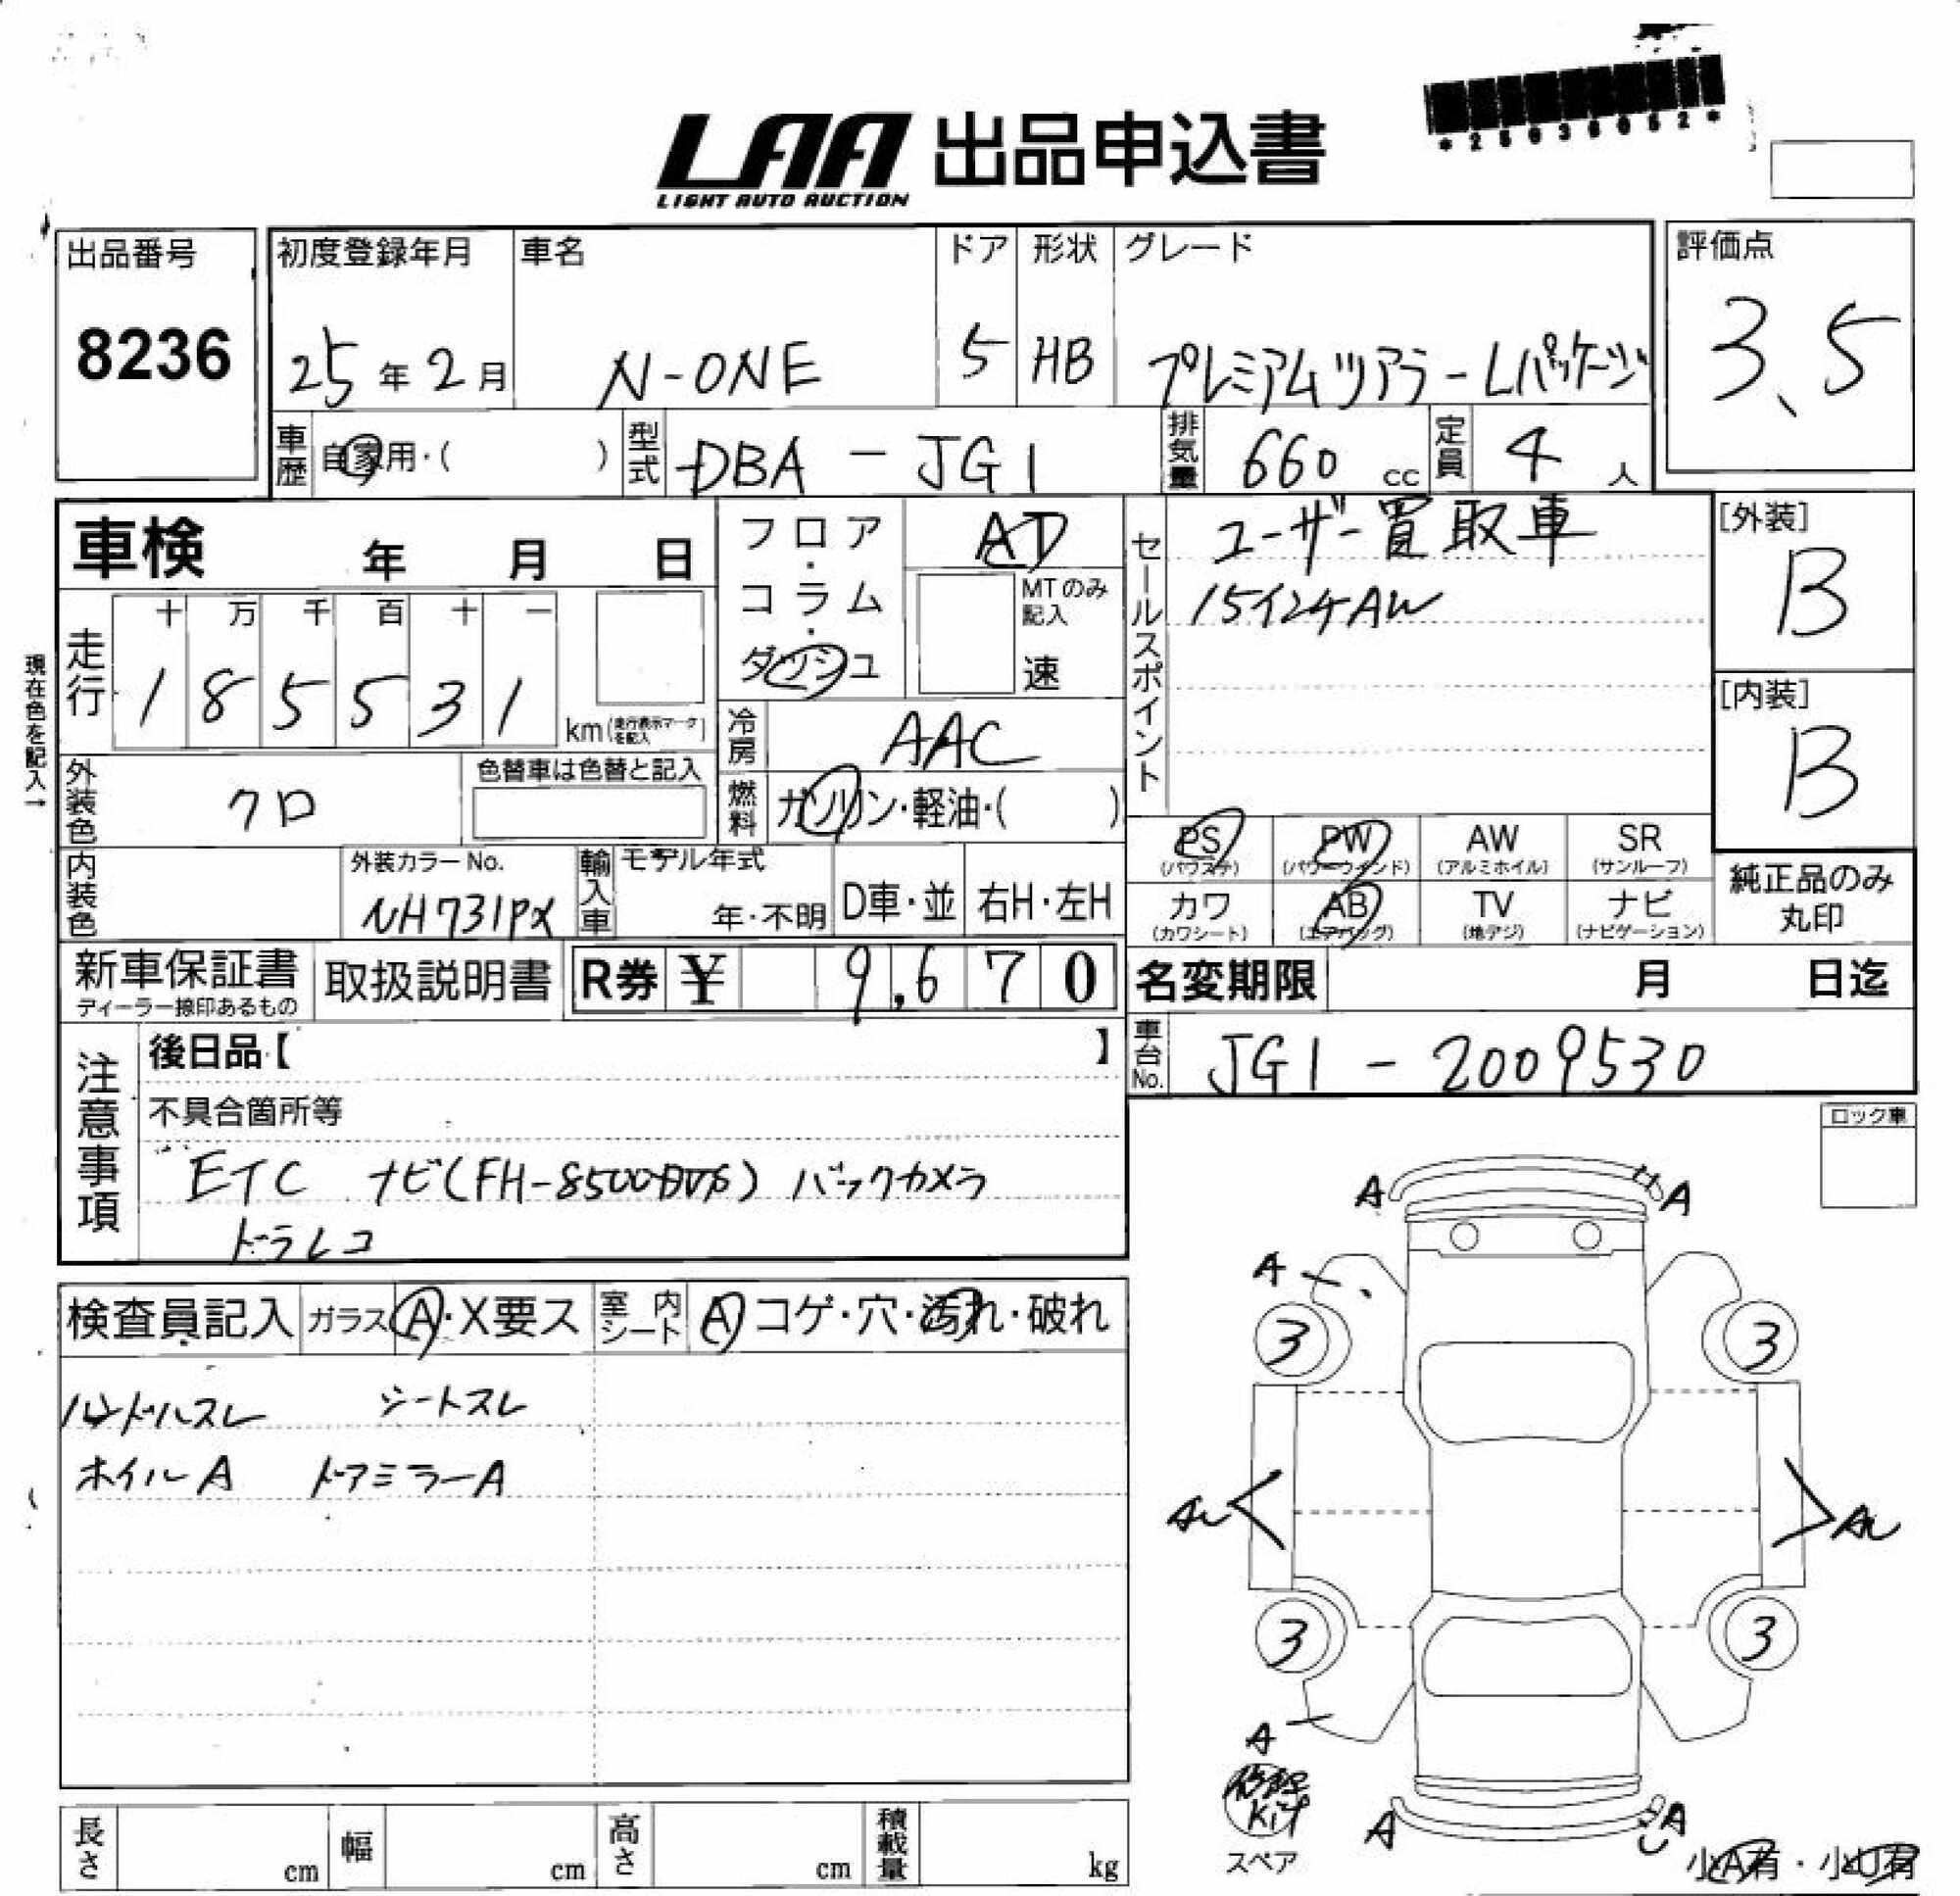 *25036052*
LAA 出品申込書
LIGHT AUTO AUCTION
出品番号
8236
初度登録年月
25年2月
車名
N-ONE
ドア
5
形状
HB
グレード
プレミアムツアラーLパッケージ
評価点
3.5
車歴 自家用・( )
型式 DBA - JG1
排気量 660 cc
定員 4 人
車検 年 月 日
フロア・コラム・ダッシュ
AT
MTのみ記入
速
セールスポイント
ユーザー買取車
15インチAW
[外装]
B
[内装]
B
現在色を記入→
走行
十 万 千 百 十 一
1 8 5 5 3 1
km(走行表示マークを記入)
冷房 AAC
燃料 ガソリン・軽油・( )
外装色 クロ
色替車は色替と記入
内装色
外装カラーNo.
NH731PX
輸入車
モデル年式
年・不明
D車・並
右H・左H
PS (パワステ)
PW (パワーウインド)
AW (アルミホイル)
SR (サンルーフ)
カワ (カワシート)
AB (エアバッグ)
TV (地デジ)
ナビ (ナビゲーション)
純正品のみ
丸印
新車保証書
ディーラー捺印あるもの
取扱説明書
R券 ¥ 9,670
名変期限 月 日迄
車台No. JG1 - 2009530
注意事項
後日品【 】
不具合箇所等
ETC ナビ(FH-8500DVS) バックカメラ
ドラレコ
ロック車
検査員記入
ガラス A・X要ス
室内シート A コゲ・穴・汚れ・破れ
ハンドルスレ シートスレ
ホイルA ドアミラーA
A A
A
3 3
AU AU
3 3
A
修理
Kit
スペア
A A
小A有・小U有
長さ cm
幅 cm
高さ cm
積載量 kg